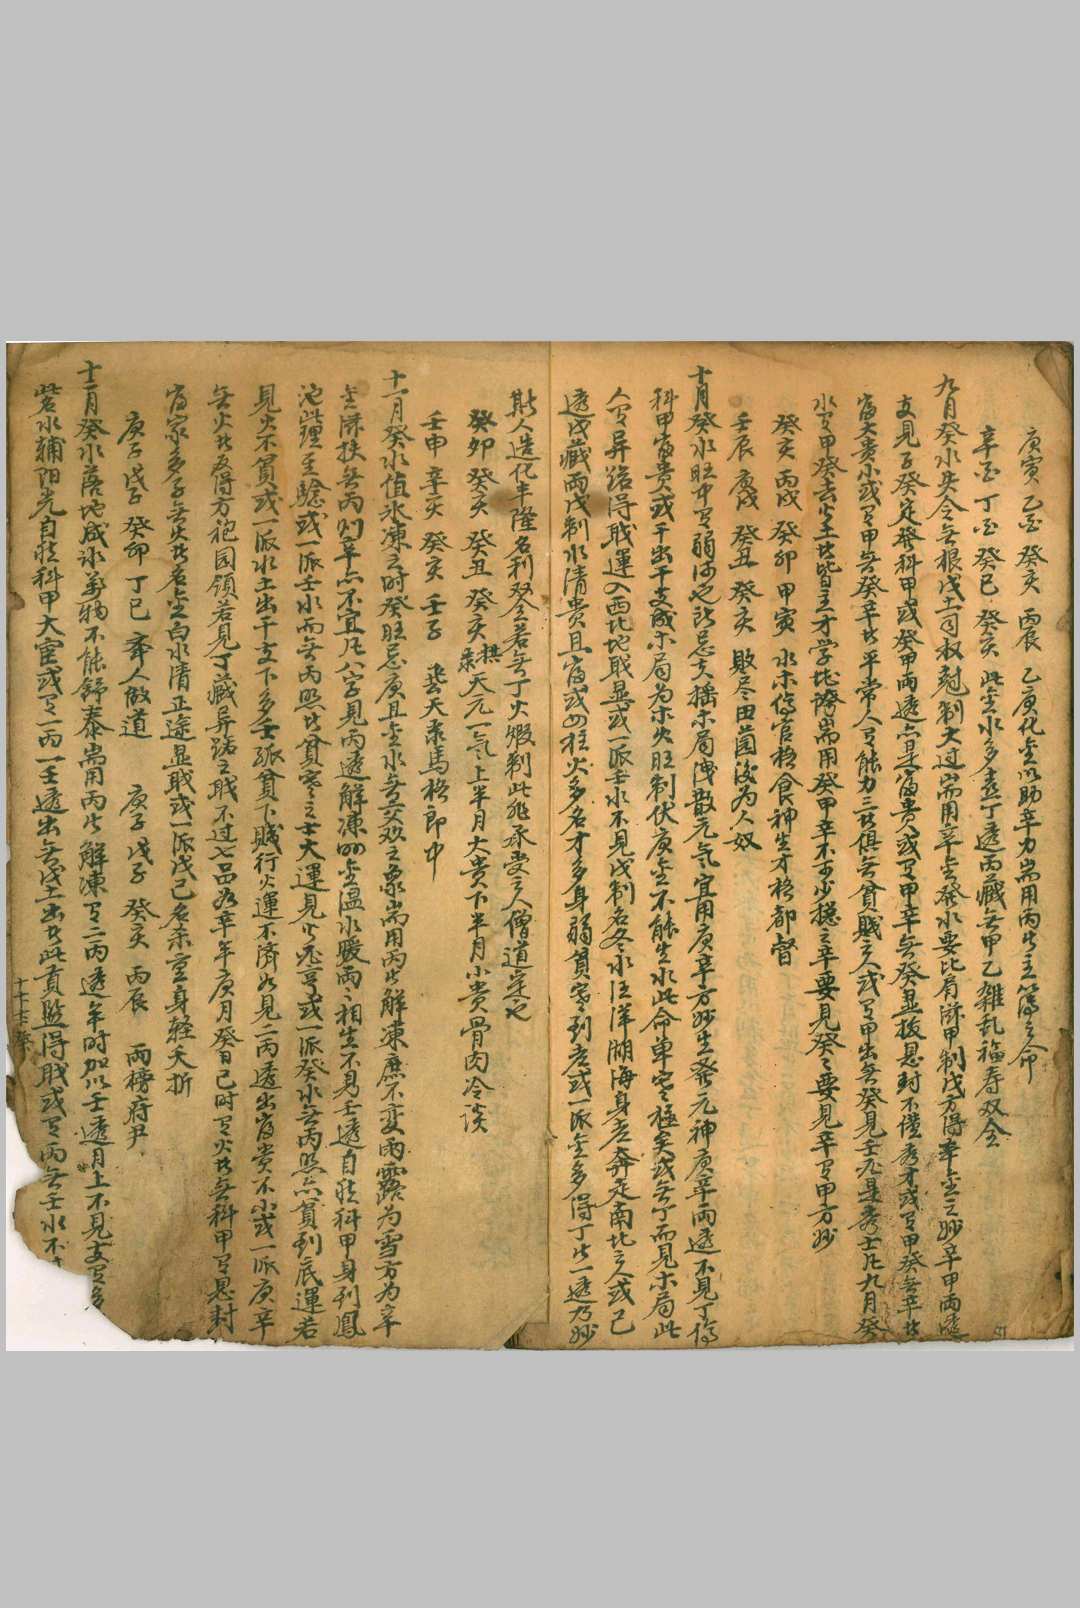 庚寅 乙酉 癸亥 丙辰 乙庚化金以助辛力耑用丙火主簿之命
辛酉 丁酉 癸巳 癸亥 此金水多喜丁透丙藏無甲乙雑乱福寿双全
九月癸水失令無根戊土司权尅制太过耑用辛金發水要比肩滋甲制戊方得辛金之妙辛甲两透
支見子癸定發科甲或癸甲两透亦是富貴或有甲辛無癸 恩封不僅秀才或有甲癸無辛者
富大貴小或有甲無癸辛者平常人有能力三者俱無貧賤之人或有甲出無癸見壬亦是秀士凡九月癸
水有甲癸去 土者皆主才学 耑用癸甲辛不可少 之辛要見癸癸要見辛有甲方妙
癸亥 丙戌 癸卯 甲寅 水木傷官格食神生才格都督
壬辰 庚戌 癸丑 癸亥 敗尽田園後为人奴
十月癸水旺中有弱 也 忌支 木局洩散元氣宜用庚辛方妙生發元神庚辛两透不見丁傷
科甲富貴或干出干支成木局为木火旺制伏庚金不能生水此命単寒極矣或無丁而見木局此
人有异路得職運入西北地職显或一派壬水不見戊制名冬水汪洋湖海身老奔走南北之人或己
透戊藏两戊制水清貴且富或四柱火多名才多身弱貧寒到老或一派金多得丁火一透乃妙
斯人造化丰隆名利双全若無丁火煆制此 承受之人僧道定也
癸卯 癸亥 癸丑 癸亥 天元一氣上半月大貴下半月小貴骨肉冷談
壬申 辛亥 癸亥 壬子 飛天 馬格郎中
十一月癸水值氷凍之时癸旺忌庚且金水無 欢之象耑用丙火解凍庶不变雨露为雪方为辛
金滋扶無丙则辛亦不宜凡八字見丙透解凍 金温水暖两々相生不見壬透自然科甲身到鳳
池此理至騐或一派壬水而無丙照者貧寒之士大運見火 亨或一派癸水無丙照亦貧到底運若
見火不貧或一派水土出干支下多壬孤貧下賤行火運不濟如見二丙透出富貴不小或一派庚辛
無火者 得方袍圆領若見丁藏异路之職不过七品如辛年庚月癸日己时有火者無科甲有恩封
富家多子無火者名金白水清正途显職或一派戊己名 身軽夭折
庚子 戊子 癸卯 丁巳 齐人做道 庚子 戊子 癸亥 丙辰 两榜府尹
十二月癸水落地成冰萬物不能舒泰耑用丙火解凍有二丙透年时加以壬透月上不見支有多
水輔陽光自然科甲大富或有一丙一壬透出無戊土出者此貢監得職或有丙無壬水不